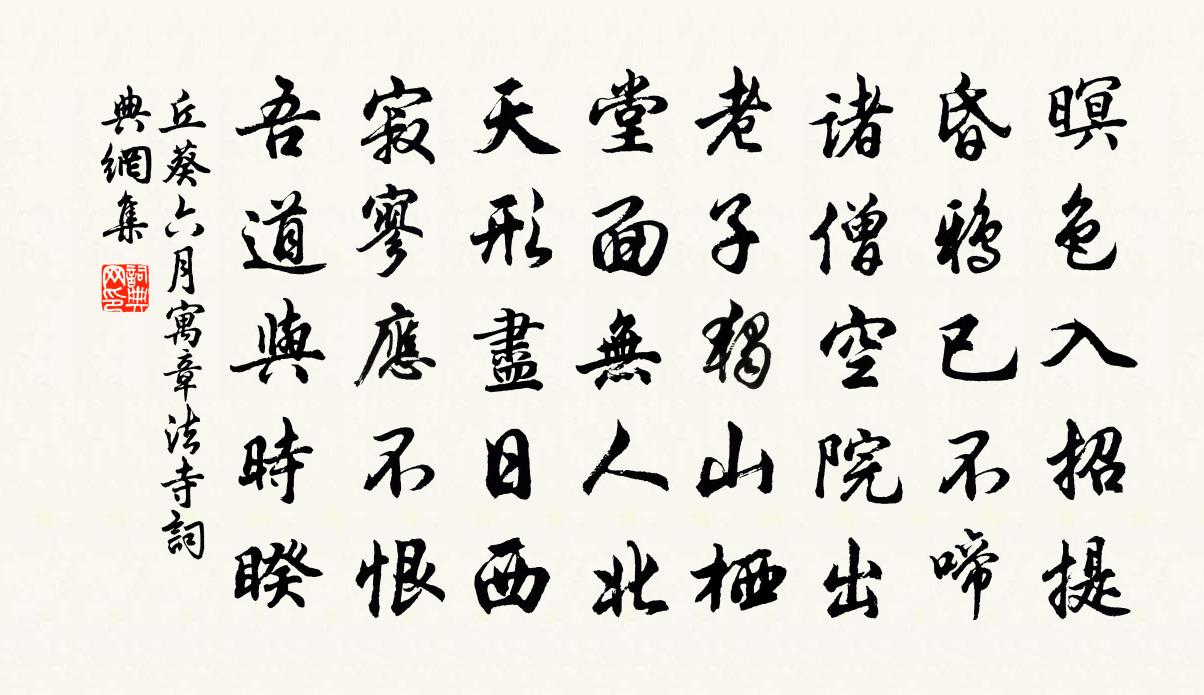 暝色入招提
昏鴉已不啼
诸僧空院出
老子獨山栖
堂面無人北
天形盡日西
寂寥應不恨
吾道與時暌
丘葵六月寓章法寺詞
典網集
詞典
网印